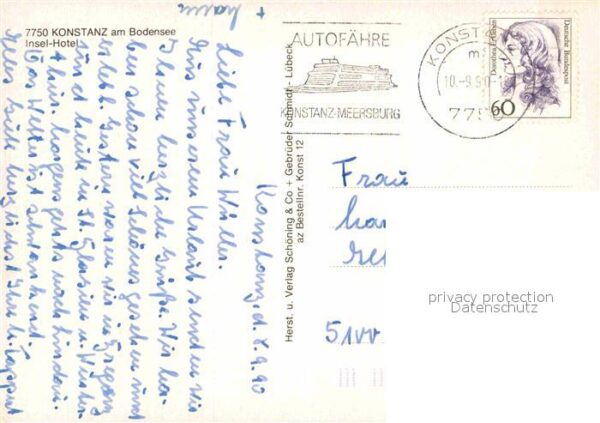 7750 KONSTANZ am Bodensee
Insel-Hotel
Herst. u. Verlag Schöning & Co + Gebrüder Schmidt - Lübeck
az Bestellnr. Konst 12
AUTOFÄHRE
KONSTANZ-MEERSBURG
KONSTANZ
10.-9.90
775
Dorothea Erxleben
Deutsche Bundespost
60
Konstanz, d. 8.9.90
Liebe Frau Waller.
Aus unserem Urlaub senden wir
Ihnen herzliche Grüße. Wir ha-
ben schon viel Schönes gesehen und
erlebt. Gestern waren wir in Bregenz
und heute in St.
morgen geht's nach Lindau.
Das Wetter ist
Frau
51
privacy protection
Datenschutz